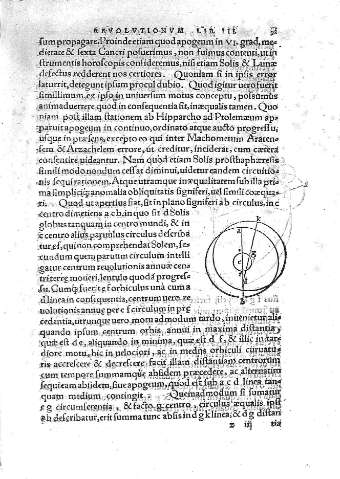 REVOLVTIONVM LIB. III.
sum propagare. Proinde etiam quod apogeum in VI. grad. me
dietate & sexta Cancri posuerimus, non fuimus contenti, ut in
strumentis horoscopis confideremus, nisi etiam Solis & Lunæ
defectus redderent nos certiores. Quoniam si in ipsis error
latuerit, detegunt ipsum procul dubio. Quod igitur uero fuerit
simillimum, ex ipso in uniuersum motus conceptu, possumus
animaduertere quod in consequentia sit, inæqualis tamen. Quo
niam post illam stationem ab Hipparcho ad Ptolemæum ap
paruit apogeum in continuo, ordinato atque aucto progressu,
usque in præsens, excepto eo qui inter Machometum Araten-
sem & Arzachelem errore, ut creditur, inciderat, cum cætera
consentire uideantur. Nam quod etiam Solis prosthaphæresis
simili modo nondum cessat diminui, uidetur eandem circuitio
nis sequi rationem. Atque utramque inæqualitatem sub illa pri
ma simplicique anomalia obliquitatis signiferi, uel simili coæqua
ri. Quod ut apertius fiat, sit in plano signiferi ab circulus, in c
centro dimetiens a c b, in quo sit d Solis
globus tanquam in centro mundi, & in
c centro alius paruulus circulus describa
tur, e f, qui non comprehendat Solem, se-
cundum quem paruum circulum intelli
gatur centrum reuolutionis annuæ cen
tri terræ moueri, lentulo quodam progres
su. Cumque fuerit e f orbiculus unà cum a
d linea in consequentia, centrum uero re-
uolutionis annuæ per e f circulum in præ
cedentia, utrunque uero motu admodum tardo, inuenietur ali
quando ipsum centrum orbis annui in maxima distantia,
quæ est d e, aliquando in minima, quæ est d f, & illic in tar
diore motu, hic in uelociori, ac in medijs orbiculi curuatu
ris accrescere & decrescere facit illam distantiam centrorum
cum tempore, summamque absidem præcedere, ac alternatim
sequi eam absidem, siue apogeum, quod est sub a c d linea tan-
quam medium contingit. Quemadmodum si sumatur
e g circumferentia, & facto g centro, circulus æqualis ipsi
a b describatur, erit summa tunc absis in d g k linea, & d g distan
z iij tia